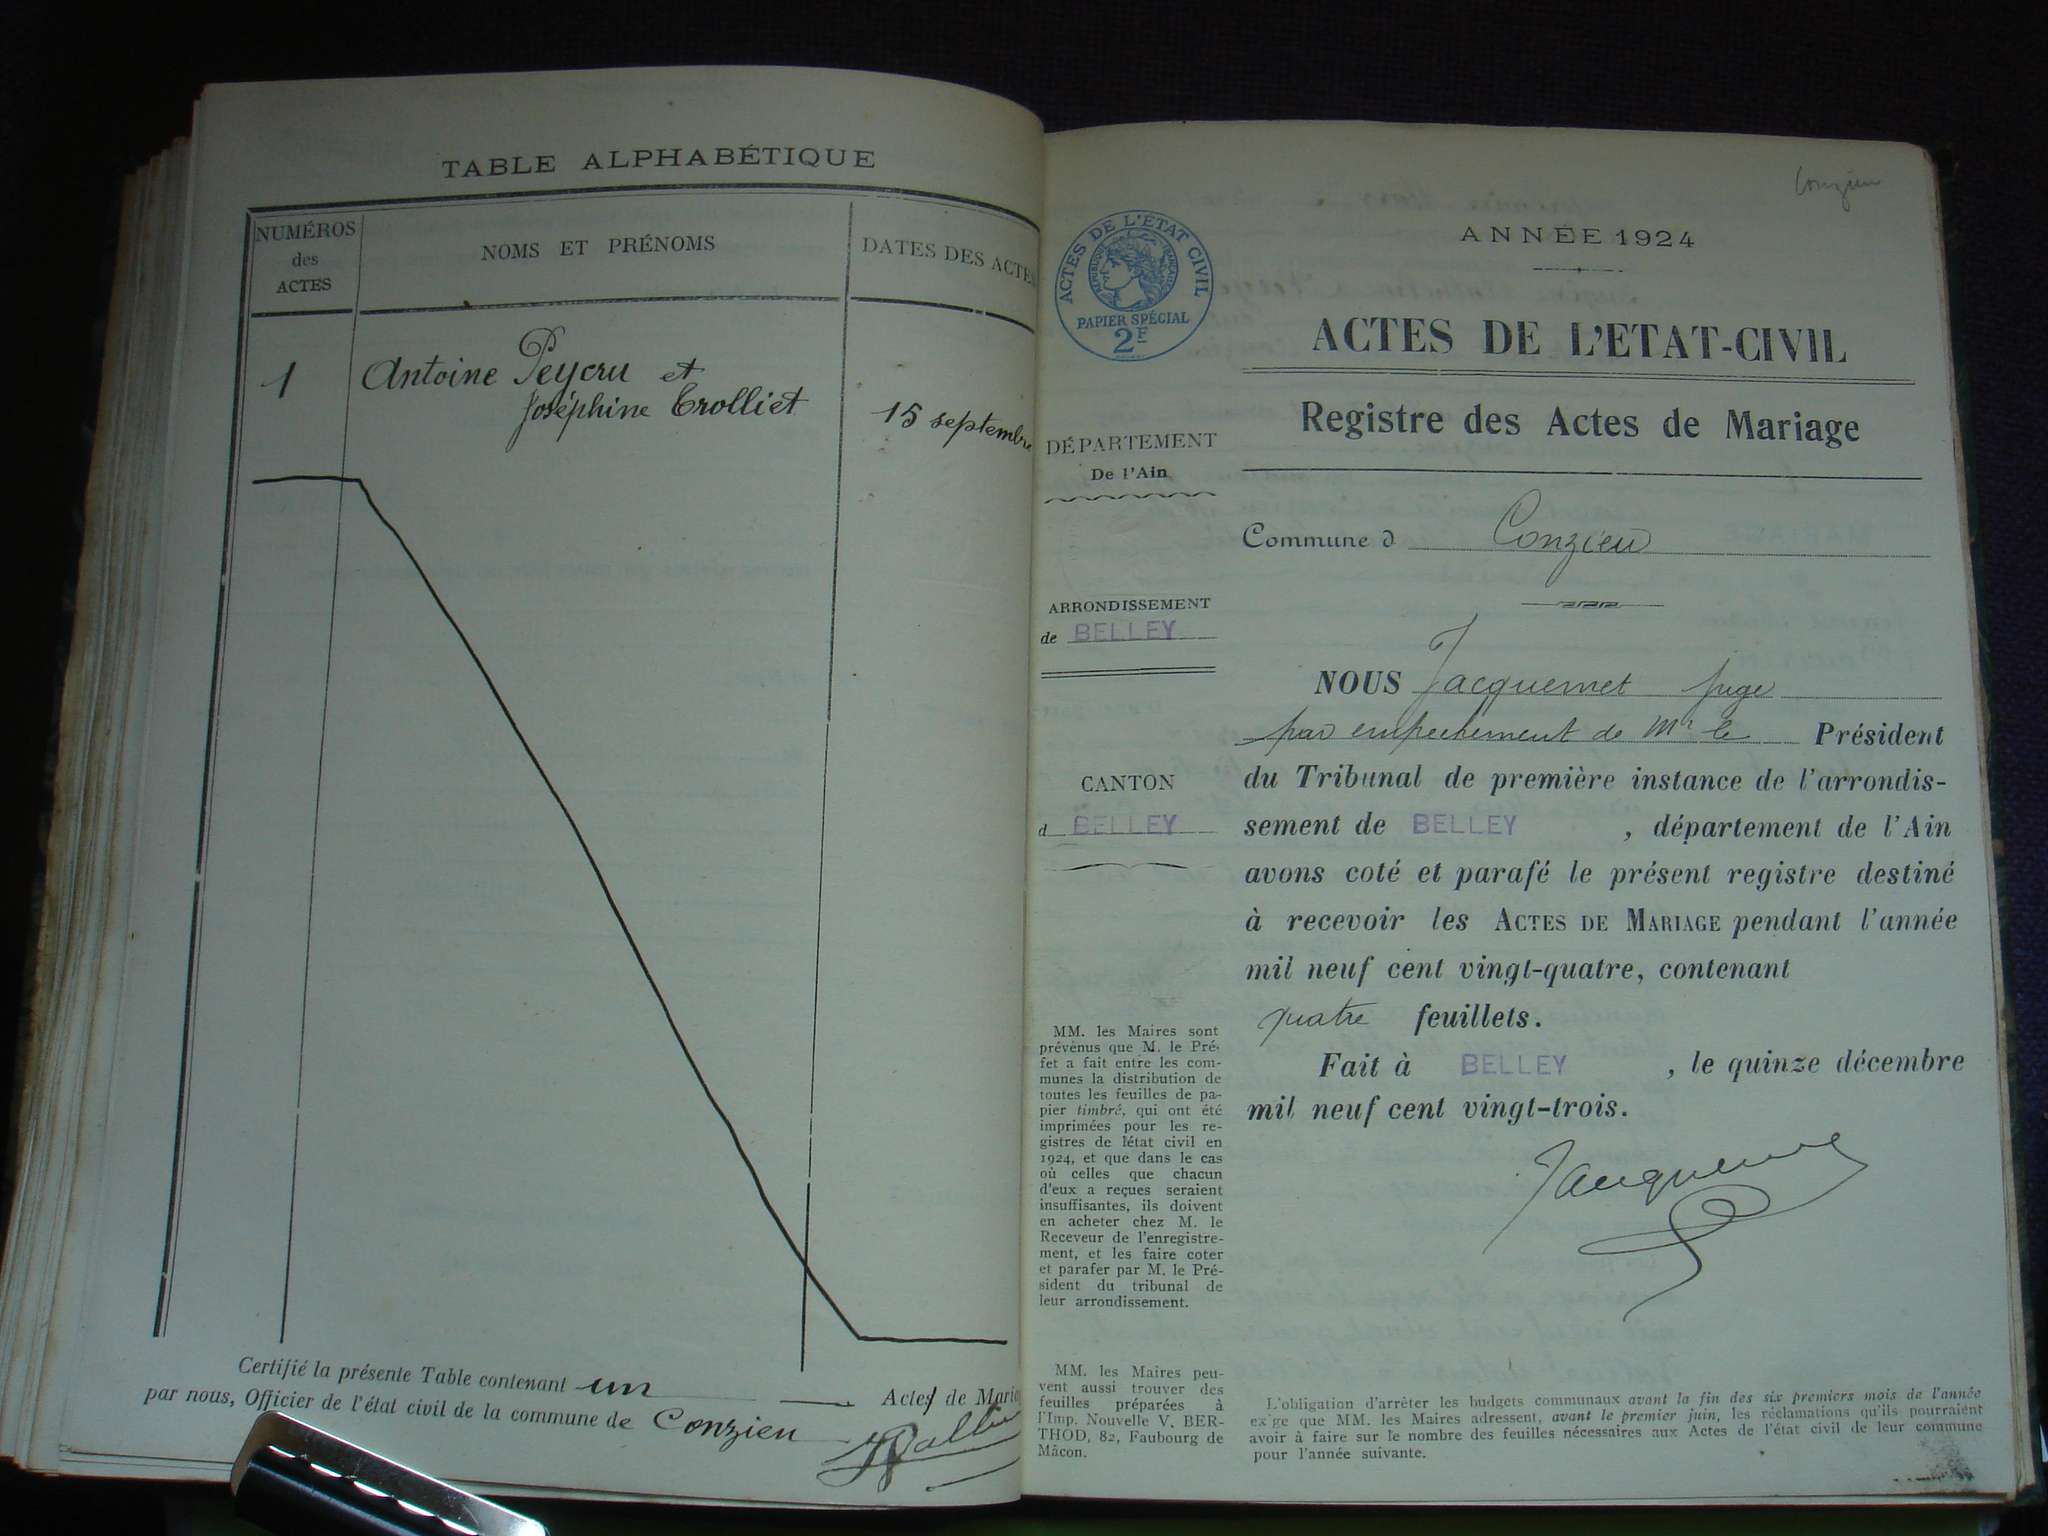 TABLE ALPHABÉTIQUE
NUMÉROS
des
ACTES
NOMS ET PRÉNOMS
DATES DES ACTES
1
Antoine Peycru et
Joséphine Trolliet
15 septembre
Certifié la présente Table contenant un Actes de Maria
par nous, Officier de l'état civil de la commune de Conzieu
Conzieu
ACTES DE L'ÉTAT CIVIL
RÉPUBLIQUE FRANÇAISE
PAPIER SPÉCIAL
2F
ANNÉE 1924
ACTES DE L'ETAT-CIVIL
Registre des Actes de Mariage
DÉPARTEMENT
De l'Ain
Commune d Conzieu
ARRONDISSEMENT
de BELLEY
CANTON
d BELLEY
NOUS Jacquemet juge
par empechement de Mr le Président
du Tribunal de première instance de l'arrondis-
sement de BELLEY , département de l'Ain
avons coté et parafé le présent registre destiné
à recevoir les ACTES DE MARIAGE pendant l'année
mil neuf cent vingt-quatre, contenant
quatre feuillets.
Fait à BELLEY , le quinze décembre
mil neuf cent vingt-trois.
Jacquemet
MM. les Maires sont
prévenus que M. le Pré-
fet a fait entre les com-
munes la distribution de
toutes les feuilles de pa-
pier timbré, qui ont été
imprimées pour les re-
gistres de l'état civil en
1924, et que dans le cas
où celles que chacun
d'eux a reçues seraient
insuffisantes, ils doivent
en acheter chez M. le
Receveur de l'enregistre-
ment, et les faire coter
et parafer par M. le Pré-
sident du tribunal de
leur arrondissement.
MM. les Maires peu-
vent aussi trouver des
feuilles préparées à
l'Imp. Nouvelle V. BER-
THOD, 82, Faubourg de
Mâcon.
L'obligation d'arrêter les budgets communaux avant la fin des six premiers mois de l'année
ex'ge que MM. les Maires adressent, avant le premier juin, les réclamations qu'ils pourraient
avoir à faire sur le nombre des feuilles nécessaires aux Actes de l'état civil de leur commune
pour l'année suivante.